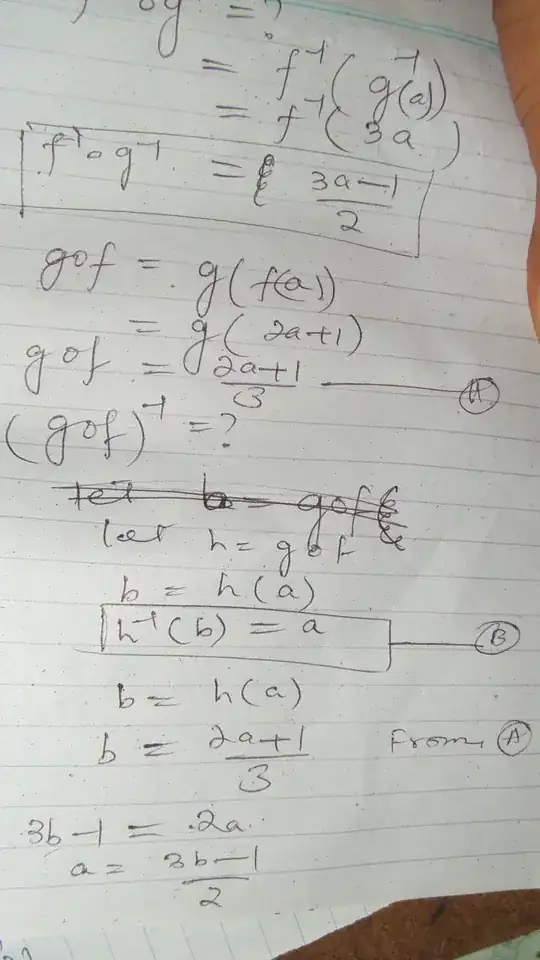 og = ?
= f⁻¹(g⁻¹(a))
= f⁻¹(3a)
f⁻¹∘g⁻¹ = (3a-1)/2
gof = g(f(a))
= g(2a+1)
gof = (2a+1)/3 — A
(gof)⁻¹ = ?
let b = gof
let h = gof
b = h(a)
h⁻¹(b) = a — B
b = h(a)
b = (2a+1)/3 From A
3b-1 = 2a
a = (3b-1)/2